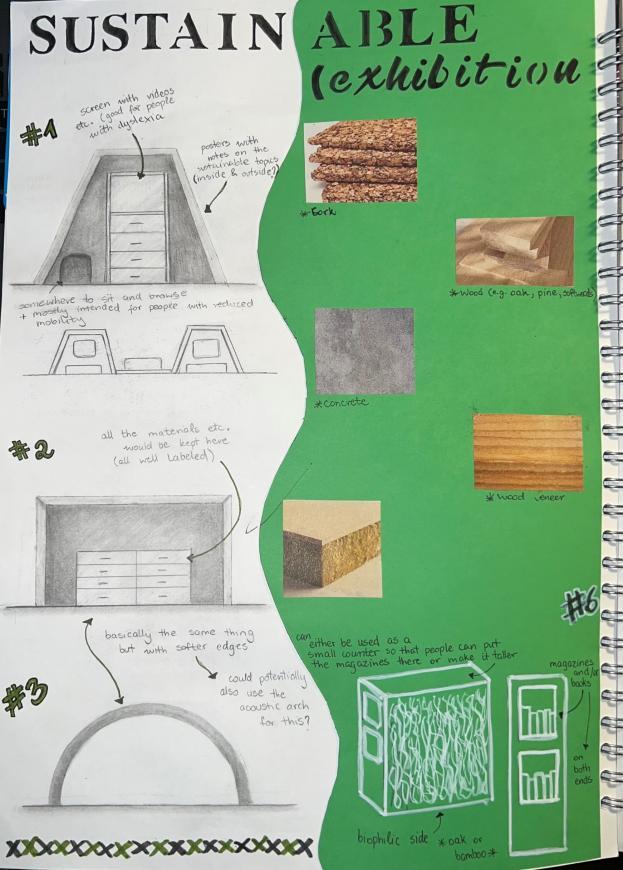 SUSTAINABLE
(exhibition
#1
screen with videos
etc. (good for people
with dyslexia
posters with
notes on the
sustainable topics
(inside & outside?)
somewhere to sit and browse
+ mostly intended for people with reduced
mobility
*Cork
*Wood (e.g. oak, pine, softwoods)
*Concrete
#2
all the materials etc.
would be kept here
(all well labeled)
*Wood veneer
basically the same thing
but with softer edges
#3
could potentially
also use the
acoustic arch
for this?
#6
can either be used as a
small counter so that people can put
the magazines there or make it taller
magazines
and/or
books
on
both
ends
biophilic side *oak or
bamboo*